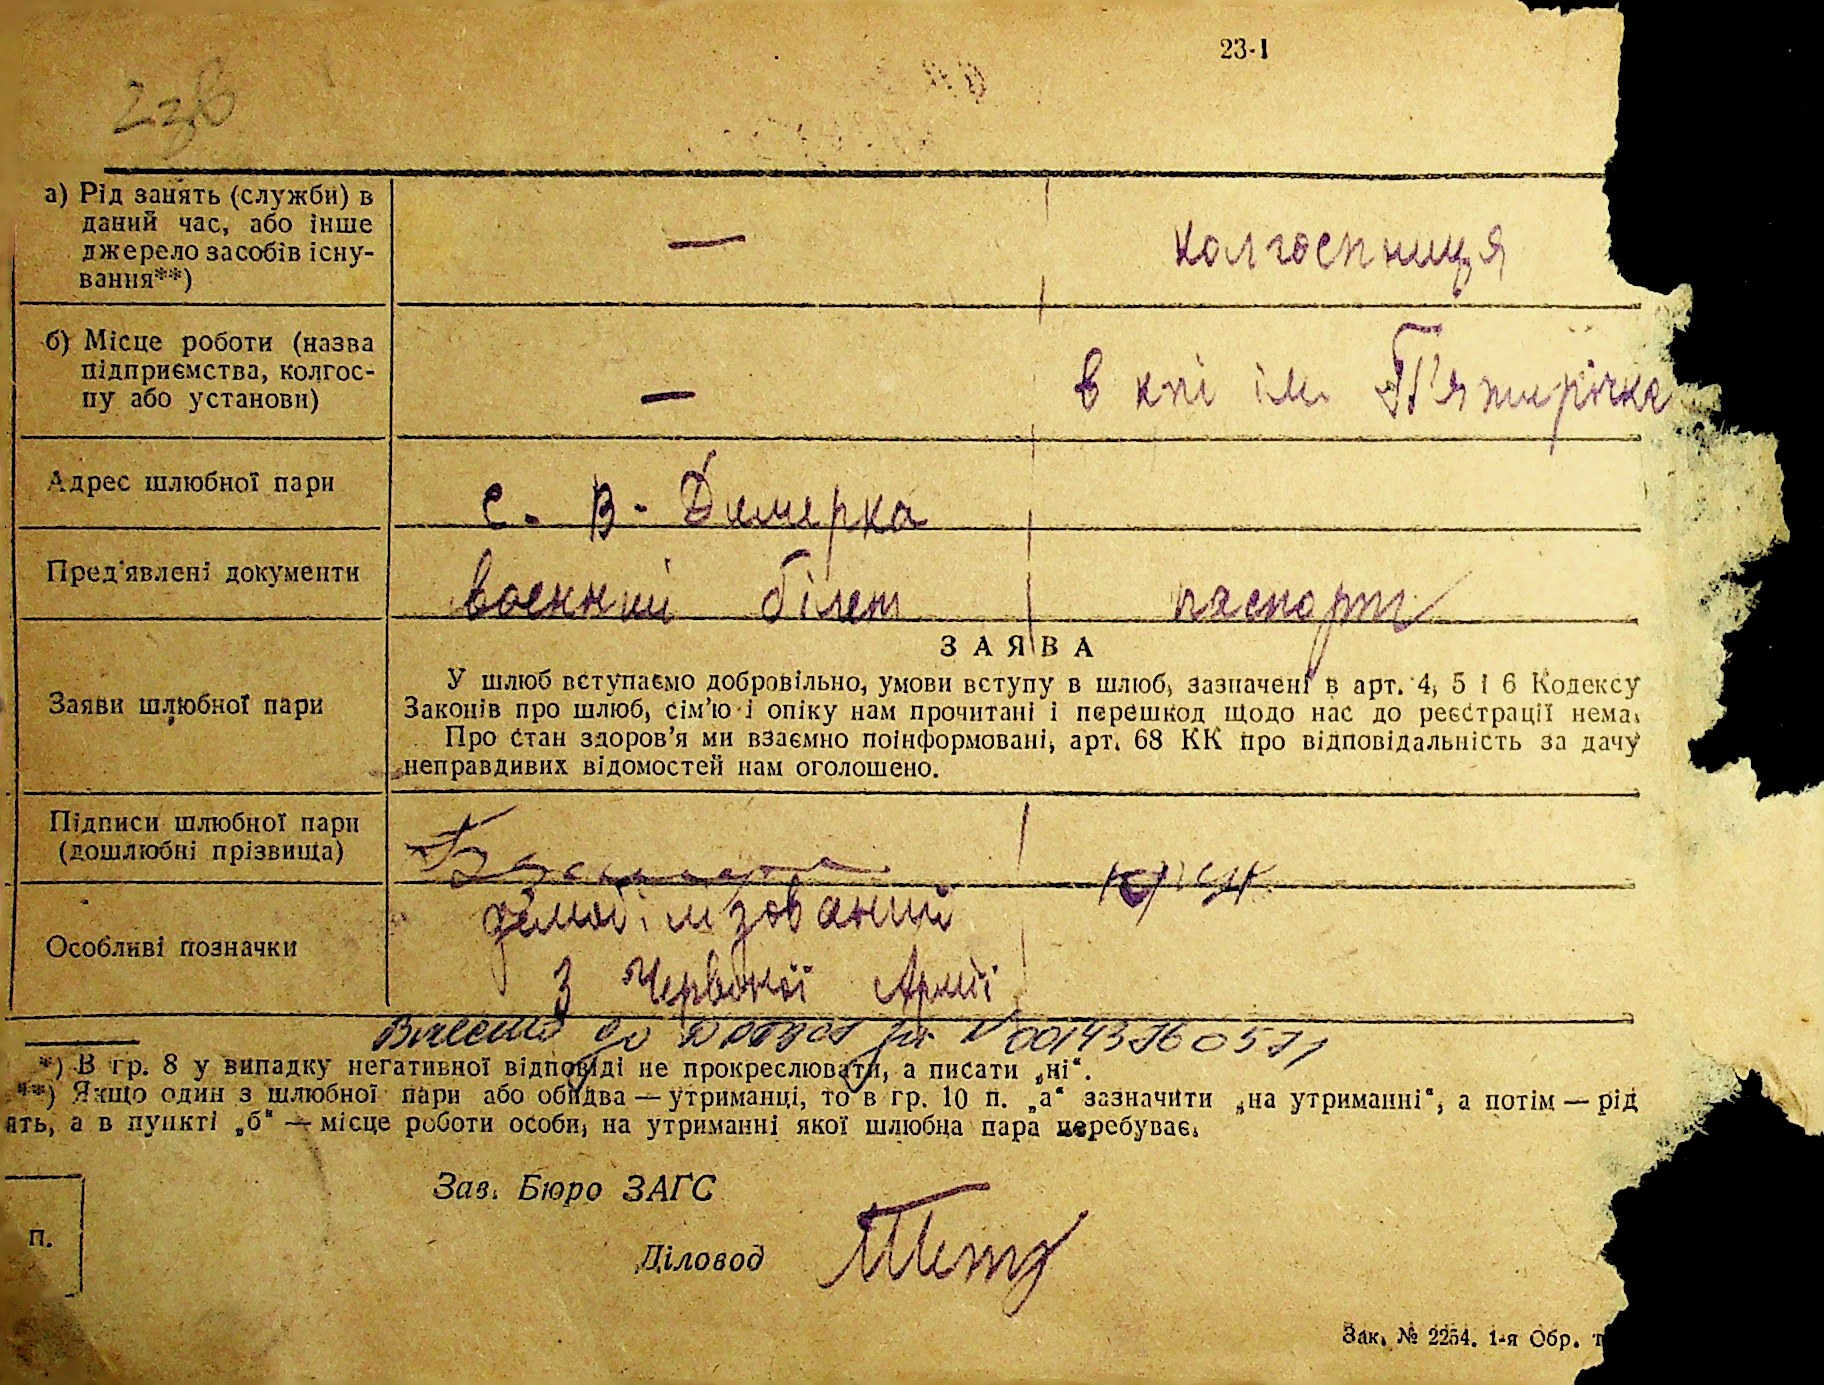 23-I
238
а) Рід занять (служби) в
даний час, або інше
джерело засобів існу-
вання**)
—
колгоспниця
б) Місце роботи (назва
підприємства, колгос-
пу або установи)
—
в кпі ім. П'ятирічка
Адрес шлюбної пари
с. В-Димерка
Пред'явлені документи
воєнний білет
паспорт
Заяви шлюбної пари
ЗАЯВА
У шлюб вступаємо добровільно, умови вступу в шлюб, зазначені в арт. 4, 5 і 6 Кодексу
Законів про шлюб, сім'ю і опіку нам прочитані і перешкод щодо нас до реєстрації нема.
Про стан здоров'я ми взаємно поінформовані, арт. 68 КК про відповідальність за дачу
неправдивих відомостей нам оголошено.
Підписи шлюбної пари
(дошлюбні прізвища)
Особливі позначки
демобілізований
з Червоної Армії
Внесено до ДРАЦСГ за № 00143760571
*) В гр. 8 у випадку негативної відповіді не прокреслювати, а писати „ні“.
**) Якщо один з шлюбної пари або обидва — утриманці, то в гр. 10 п. „а“ зазначити „на утриманні“, а потім — рід
ять, а в пункті „б“ — місце роботи особи, на утриманні якої шлюбна пара перебуває.
Зав. Бюро ЗАГС
П.
Діловод
Зак. № 2254. 1-я Обр. т